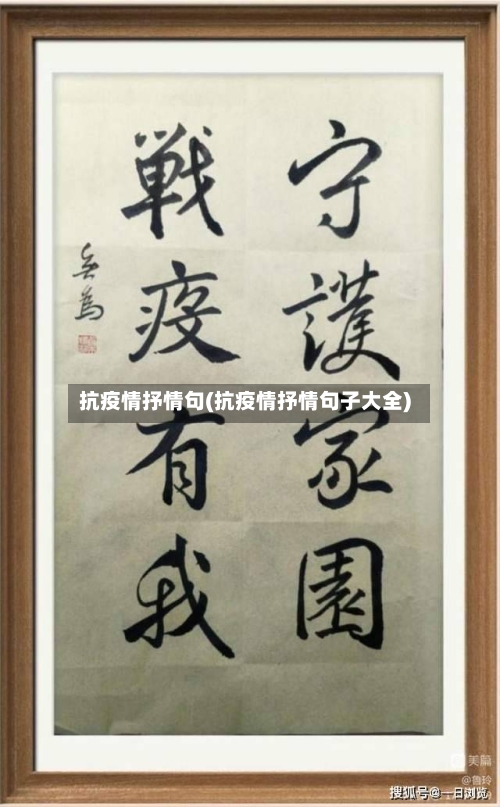 守護家園
戦疫有我
抗疫情抒情句(抗疫情抒情句子大全)
美篇
@鲁玲
搜狐号@一日浏览